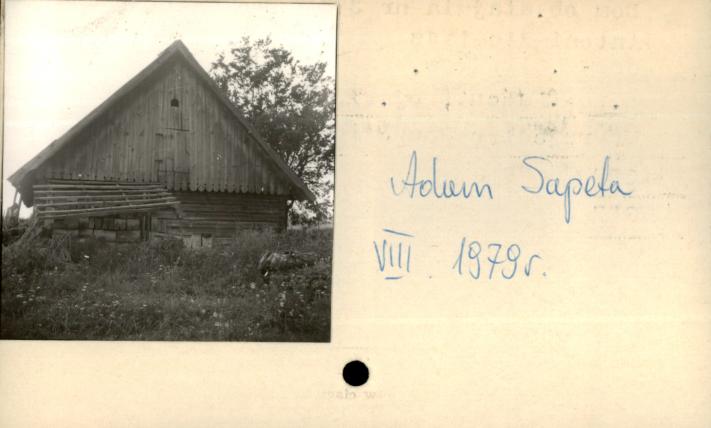 Adam Sapeta
VIII. 1979r.